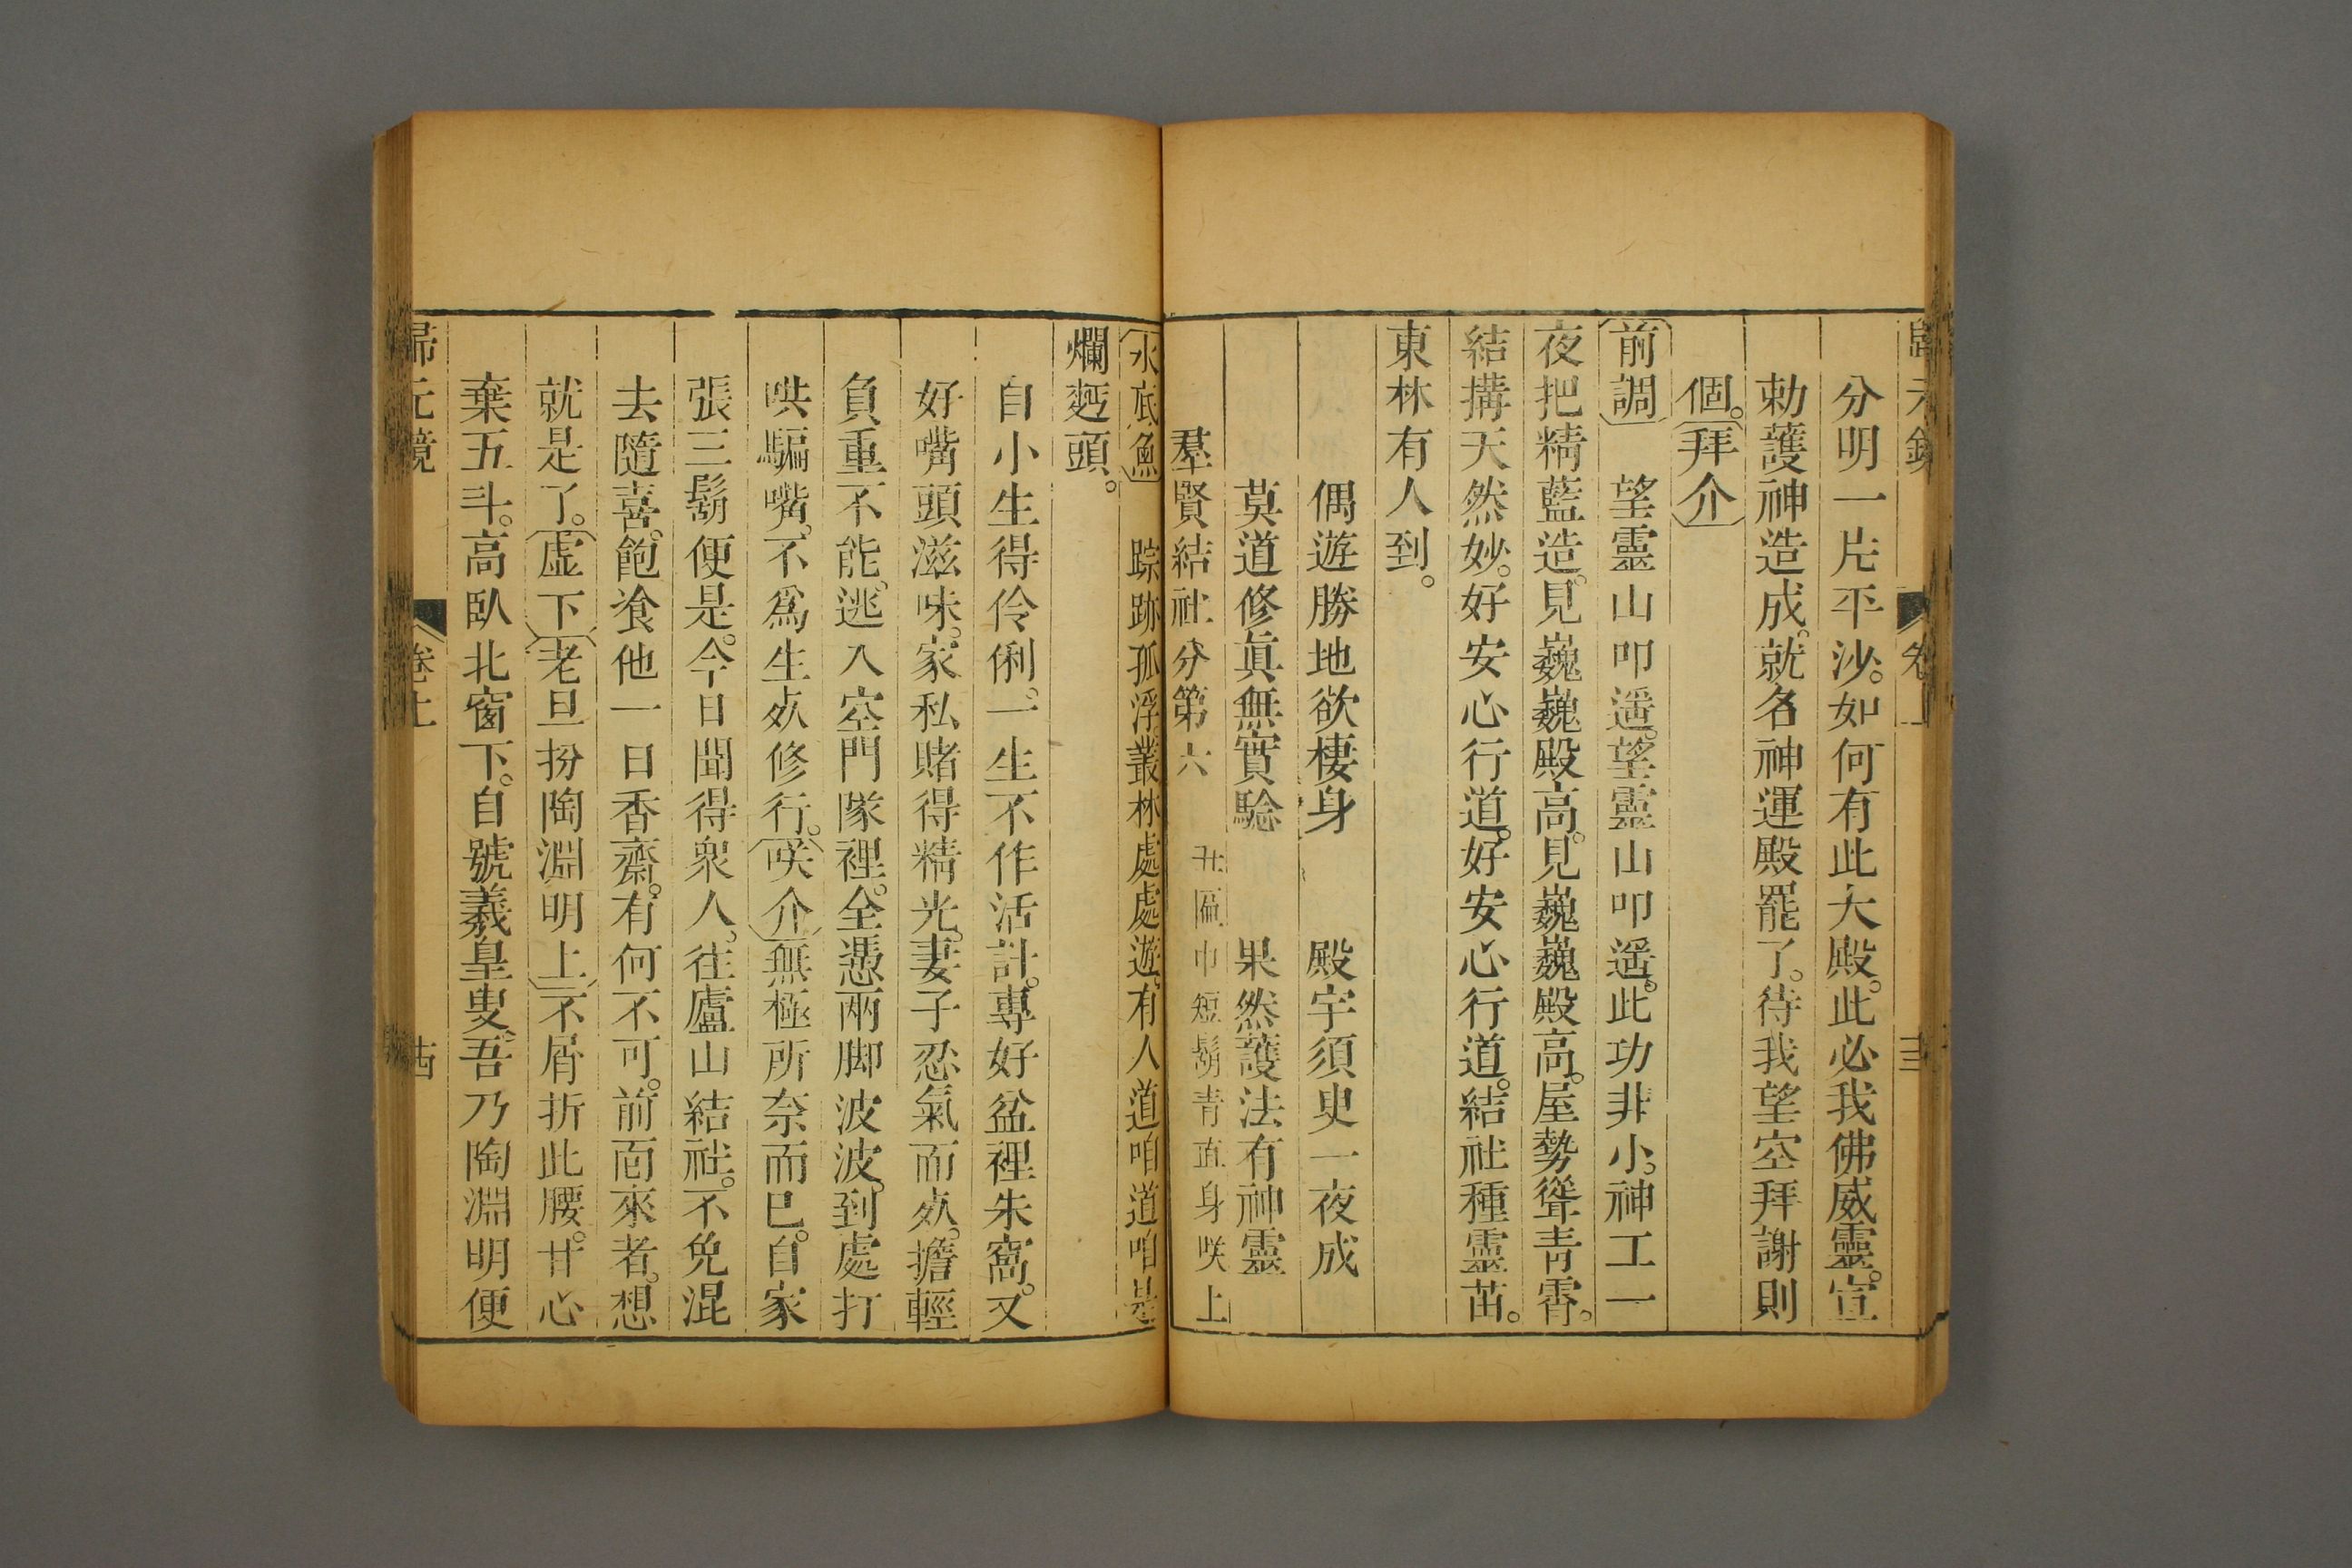 分明一片平沙。如何有此大殿。此必我佛威靈。宣
勅護神造成。就名神運殿罷了。待我望空拜謝則
個。拜介
前調 望靈山叩遥。望靈山叩遥。此功非小。神工一
夜把精藍造。見巍巍殿高。見巍巍殿高。屋勢聳青霄。
結搆天然妙。好安心行道。好安心行道。結社種靈苗。
東林有人到。
偶遊勝地欲棲身 殿宇須臾一夜成
莫道修眞無實驗 果然護法有神靈
羣賢結社分第六 丑匾巾短鬍青直身咲上
水底魚 踪跡孤浮。叢林處處遊。有人道咱道咱是
爛麪頭。
自小生得伶俐。一生不作活計。專好盆裡朱窩。又
好嘴頭滋味。家私賭得精光。妻子忍氣而死。擔輕
負重不能。逃入空門隊裡。全憑兩脚波波。到處打
哄騙嘴。不爲生死修行。咲介無極所奈而已。自家
張三鬍便是。今日聞得衆人。往廬山結社。不免混
去隨喜。飽飡他一日香齋。有何不可。前面來者。想
就是了。虚下老旦扮陶淵明上不屑折此腰。甘心
棄五斗。高臥北窗下。自號羲皇叟。吾乃陶淵明便
歸元鏡 卷上 十四